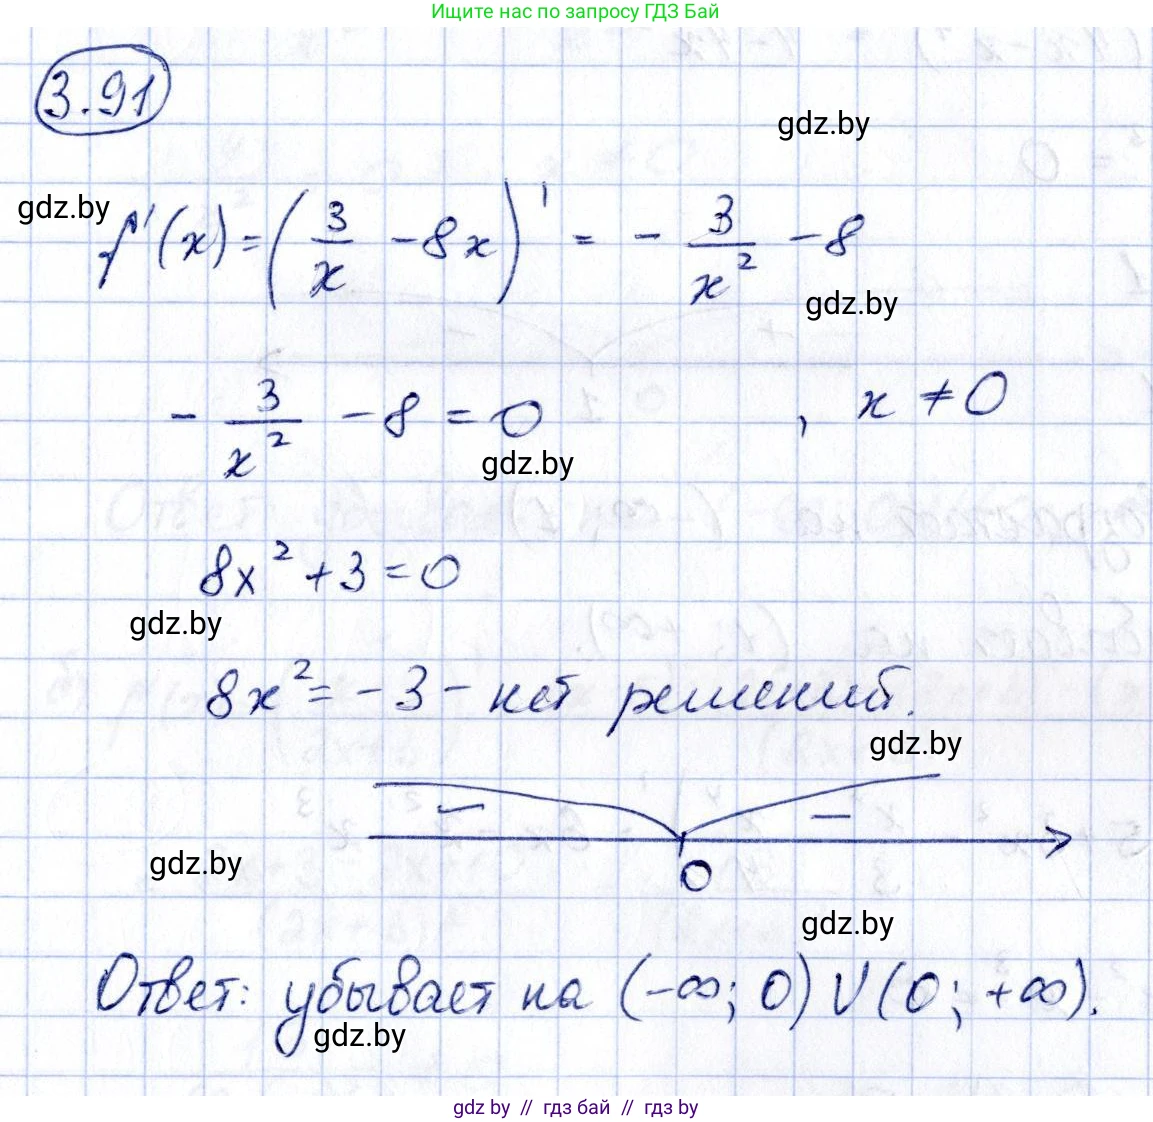 Ищите нас по запросу ГДЗ Бай
3.91
gdz.by
gdz.by
f'(x) = (3/x - 8x)' = - 3/x² - 8
gdz.by
- 3/x² - 8 = 0 , x ≠ 0
gdz.by
8x² + 3 = 0
gdz.by
8x² = -3 - нет решений.
gdz.by
- -
0
gdz.by
gdz.by
Ответ: убывает на (-∞; 0) U (0; +∞).
gdz.by
gdz.by // гдз бай // гдз by